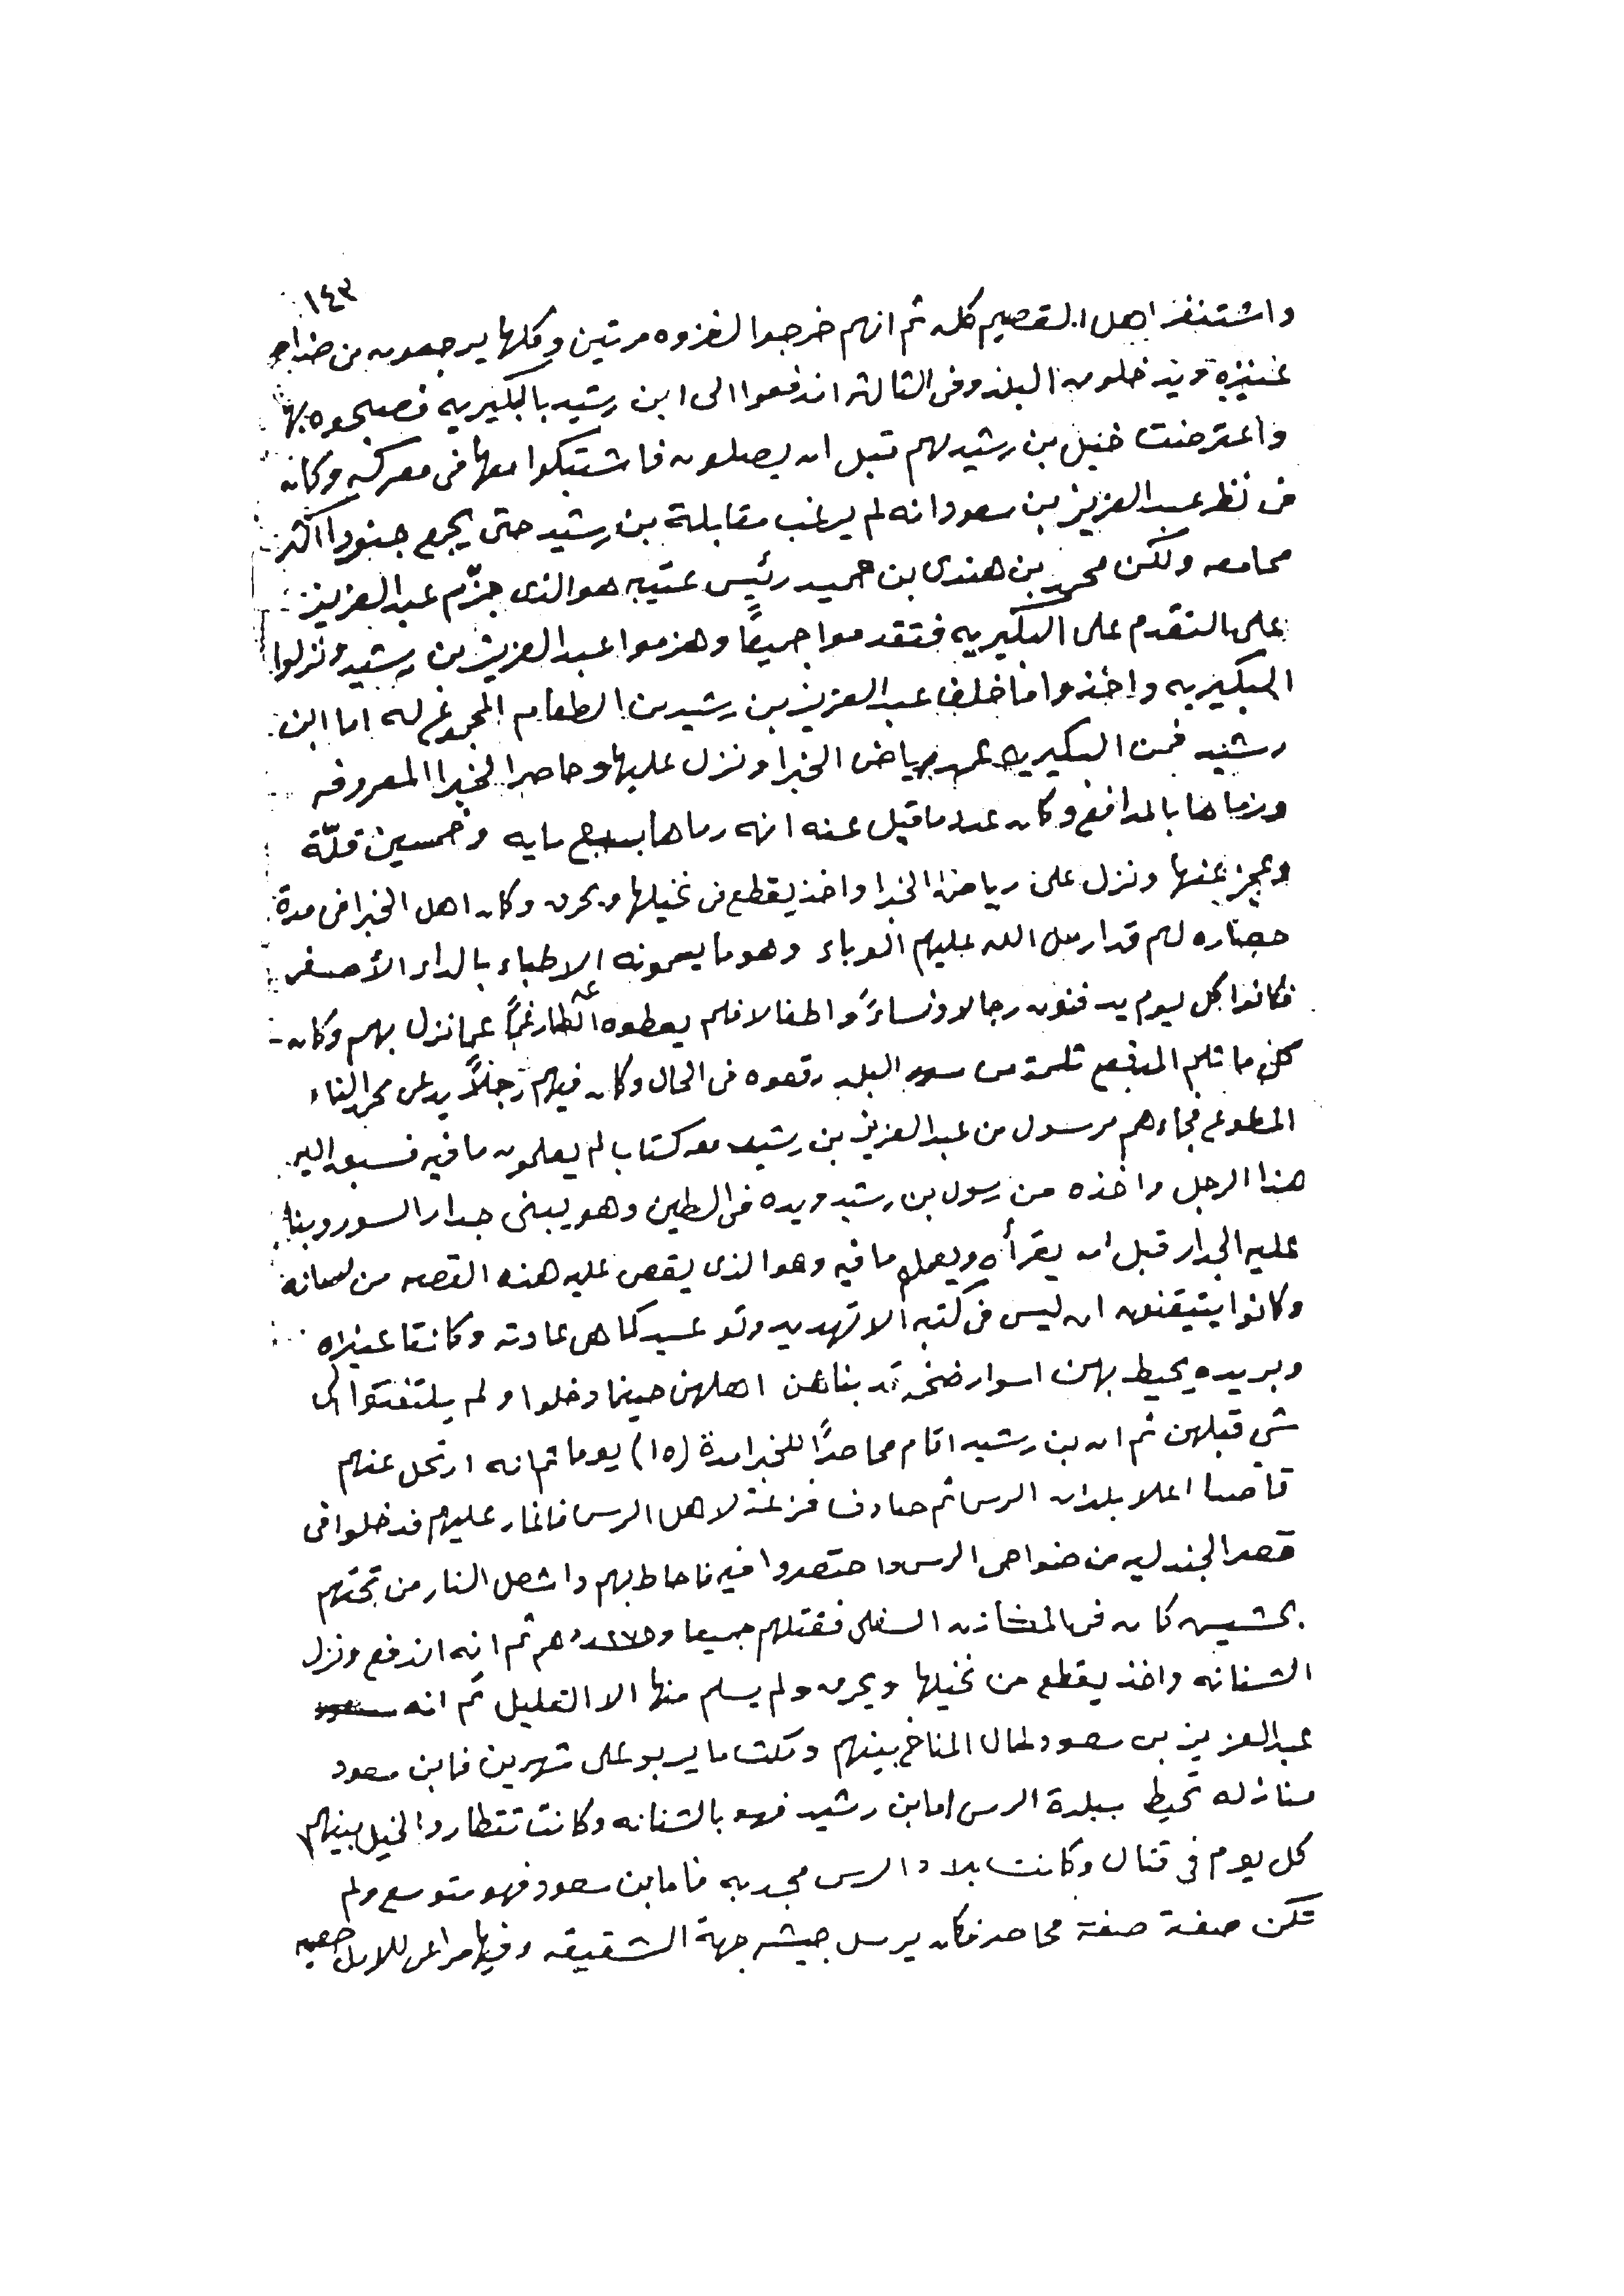 ١٤٣
واشتنفر اهل القصيم كله ثم انهم خرجوا لغزوه مرتين وكلها يرجعون من ضواحي
عنيزة ويدخلون البلد وفي الثالثه اندفعوا الى ابن رشيد بالبكيريه فصبحوه بها
واعترضت خيل بن رشيد لهم قبل ان يصلون فاشتبكوا معها في معركه وكان
في نظر عبدالعزيز بن سعود انه لم يرغب مقابلة بن رشيد حتى يجمع جنودا اكثر
مما معه ولكن محمد بن هندي بن حميد رئيس عتيبه هو الذي جزّم عبدالعزيز
على التقدم على البكيريه فتقدموا جميعاً وهزموا عبدالعزيز بن رشيد ونزلوا
البكيريه واخذوا ما خلف عبدالعزيز بن رشيد من الطعام المجموع له اما ابن
رشيد فمن البكيريه عمد رياض الخبرا ونزل عليها وحاصر الخبرا المعروفه
ورماها بالمدافع وكان عدد ما قيل عنه انه رماها بسبع مايه وخمسين قلّة
وعجز عنها ونزل على رياض الخبرا واخذ يقطع في نخيلها ويحرق وكان اهل الخبرا في مدة
حصاره لهم قد ارسل الله عليهم الوباء وهو ما يسمونه الاطباء بالداء الأصفر
فكانوا كل يوم يدفنون رجالا ونساءً واطفالا فلم يعطوه الطاعه رغماً عما نزل بهم وكان
كل ما ثلم المدفع ثلمة من سور البلد رقعوه في الحال وكان فيهم رجلاً يدعى محمد الناء
المطوع فجاءهم مرسول من عبدالعزيز بن رشيد معه كتاب لم يعلمون ما فيه فسبق اليه
هذا الرجل واخذه من رسول بن رشيد ويده في الطين وهو يبني جدار السور وبنا
عليه الجدار قبل ان يقرأه ويعلم ما فيه وهو الذي يقص عليه هذه القصه من لسانه
وكانوا يتيقنون ان ليس في كتبه الا تهديد وتوعيد كما هي عادته وكانتا عنيزه
وبريده يحيط بهن اسوار ضخمه قد بناهن اهلهن حينما دخلوا ولم يلتفتوا الى
شي قبلهن ثم ان بن رشيد اقام محاصرًا للخبرا مدة (١٥) يوما ثم انه ارتحل عنهم
قاصدا اعلا بلدان الرس ثم صادف فزعة لاهل الرس فاغار عليهم فدخلوا في
قصر الجندليه من ضواحي الرس واحتصروا فيه فاحاط بهم واشعل النار من تحتهم
بحشيش كان في المخازن السفلي فقتلهم جميعا هم ثم انه اندفع ونزل
الشنانه واخذ يقطع من نخيلها ويحرق ولم يسلم منها الا القليل ثم انه
عبدالعزيز بن سعود طال المناخ بينهم ومكث ما يربو على شهرين فابن سعود
منازله تحيط ببلدة الرس اما بن رشيد فهو بالشنانه وكانت تتطارد الخيل بينهم
كل يوم في قتال وكانت بلاد الرس مجدبه فاما بن سعود فهو متوسع ولم
تكن صفته صفة محاصر فكان يرسل جيشه جهة الشقيقه وفيها مراعي للابل